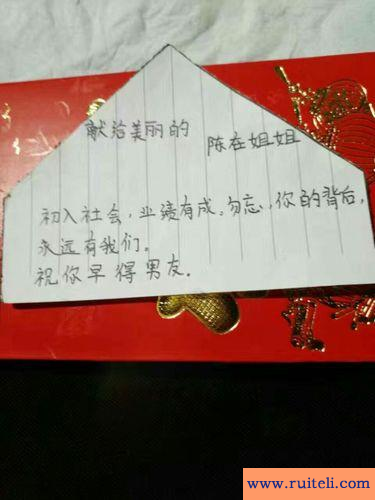 献给美丽的 陈在姐姐
初入社会，业绩有成。勿忘，你的背后，
永远有我们。
祝你早得男友．
www.ruiteli.com